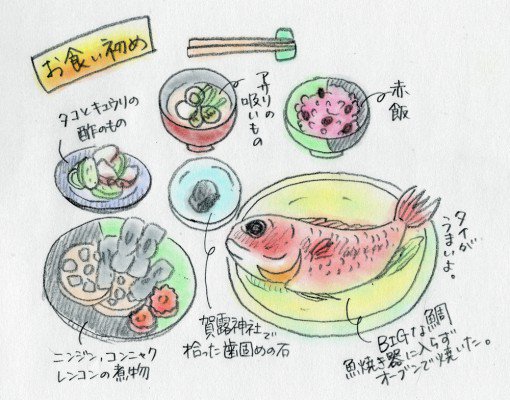 お食い初め
タコとキュウリの
酢のもの
アサリの
吸いもの
赤飯
タイが
うまいよ。
ニンジン、コンニャク
レンコンの煮物
賀露神社で
拾った歯固めの石
BIGな鯛
魚焼き器に入らず
オーブンで焼いた。